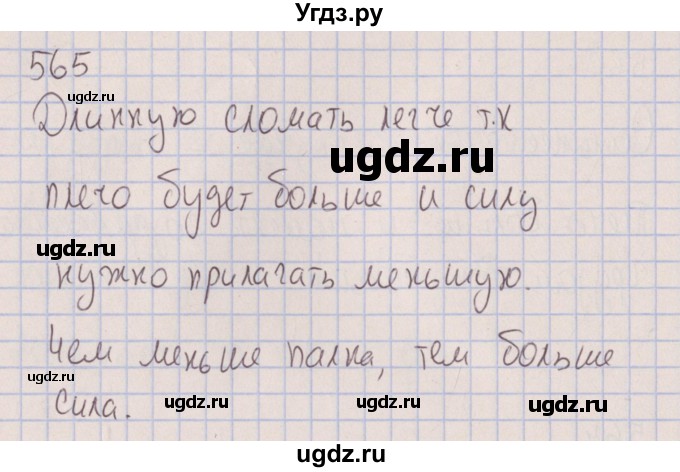 Угдз.ру
565
ugdz.ru
Длинную сломать легче т.к
ugdz.ru
плечо будет больше и силу
ugdz.ru
нужно прилагать меньшую.
Чем меньше палка, тем больше
ugdz.ru
сила.
ugdz.ru ugdz.ru ugdz.ru
ugdz.ru